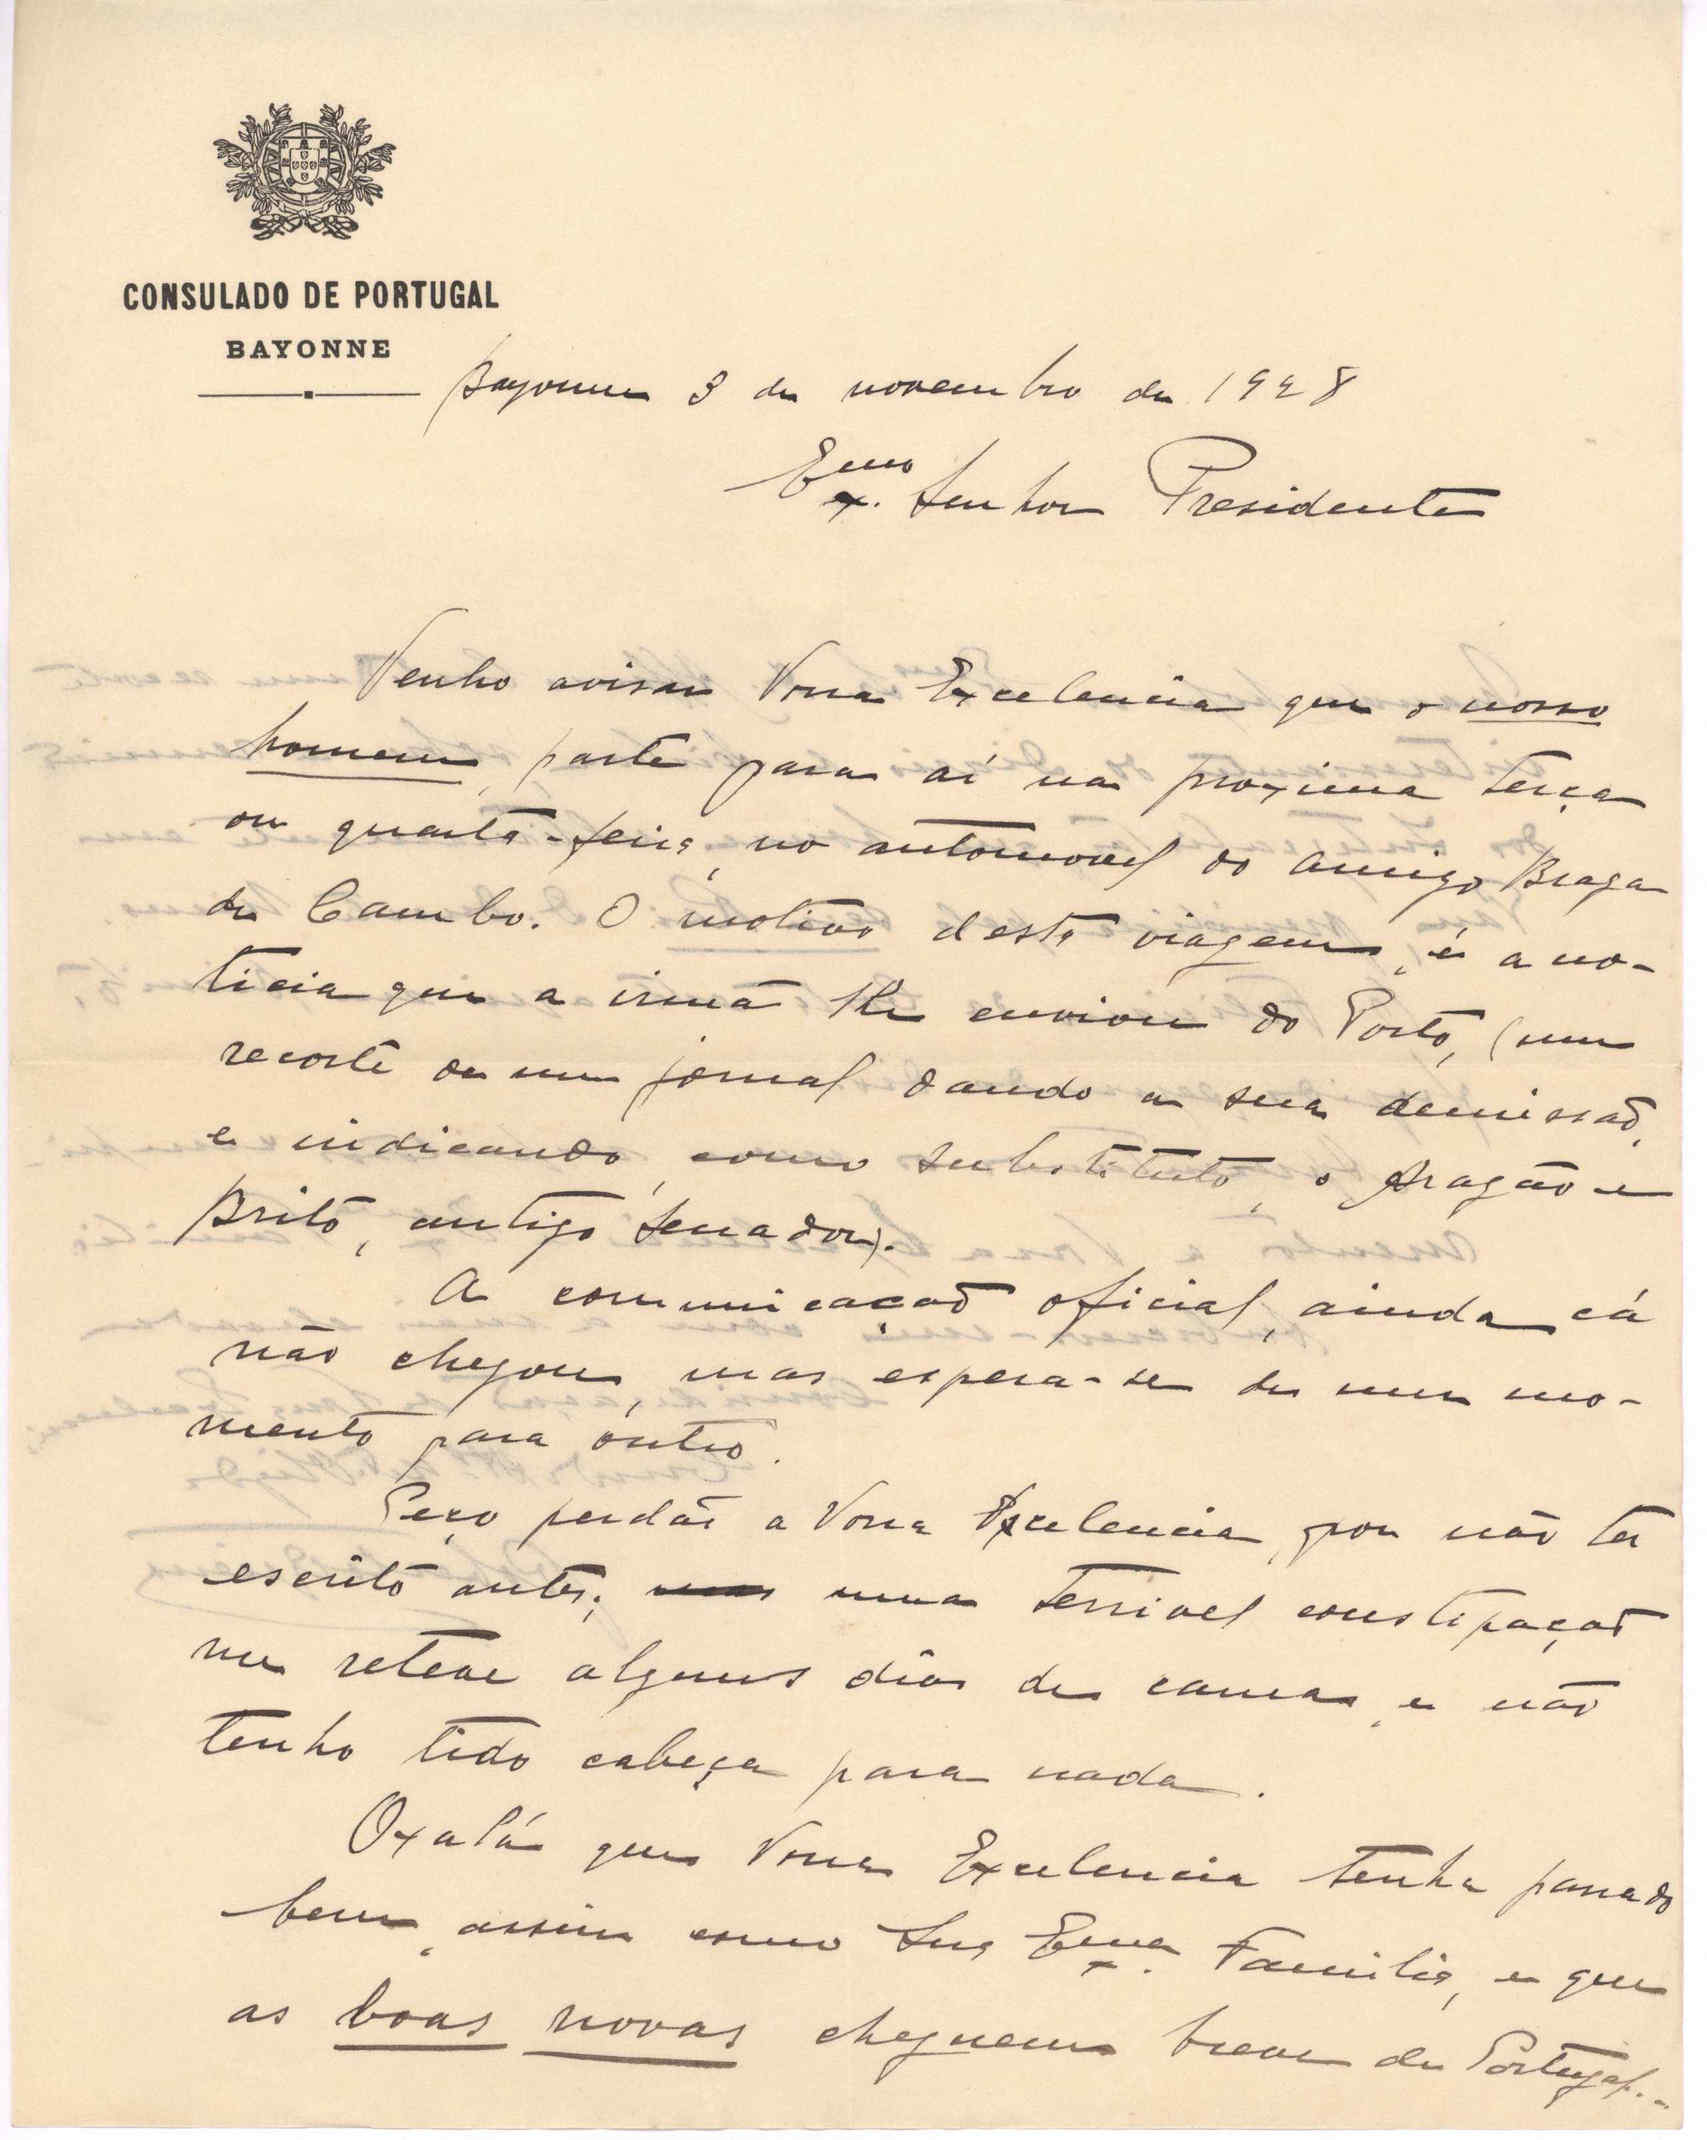 CONSULADO DE PORTUGAL
BAYONNE
Bayonne 3 de novembro de 1928
Exmo. Senhor Presidente
Venho avisar Vossa Excelencia que o nosso
homem, parte para aí na proxima terça
ou quarta-feira, no automovel do amigo Braga
de Cambo. O motivo desta viagem, é a no-
ticia que a irmã lhe enviou do Porto, (um
recorte de um jornal dando a sua demissão,
e indicando, como substituto, o Aragão e
Brito, antigo senador).
A comunicação oficial, ainda cá
não chegou, mas espera-se de um mo-
mento para outro.
Peço perdão a Vossa Excelencia, por não ter
escrito antes; uma terrivel constipação
me reteve alguns dias de cama, e não
tenho tido cabeça para nada.
Oxalá que Vossa Excelencia tenha passado
bem, assim como Sua Exma. Familia, e que
as boas novas cheguem breve de Portugal..-